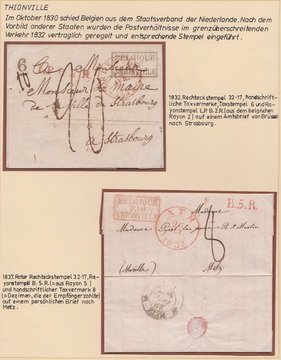 THIONVILLE
Im Oktober 1830 schied Belgien aus dem Staatsverband der Niederlande. Nach dem
Vorbild anderer Staaten wurden die Postverhältnisse im grenzüberschreitenden
Verkehr 1832 vertraglich geregelt und entsprechende Stempel eingeführt.
6
BELGIQUE
PAR
THIONVILLE
A Monsieur
Monsieur le maire
de la Ville de Strasbourg
à Strasbourg
1832, Rechteckstempel 32-17, handschrift-
liche Taxvermerke, Taxstempel 6 und Rayon-
stempel L.P.B.2.R (aus dem belgischen
Rayon 2) auf einem Amtsbrief von Brüssel
nach Strasbourg.
BELGIQUE
PAR
THIONVILLE
B.5.R.
Madame
Metz
1837, Roter Rechteckstempel 32-17, Ra-
yonstempel B.5.R. (=aus Rayon 5)
und handschriftlicher Taxvermerk 8
(=Dezimen, die der Empfänger zahlte)
auf einem persönlichen Brief nach
Metz.